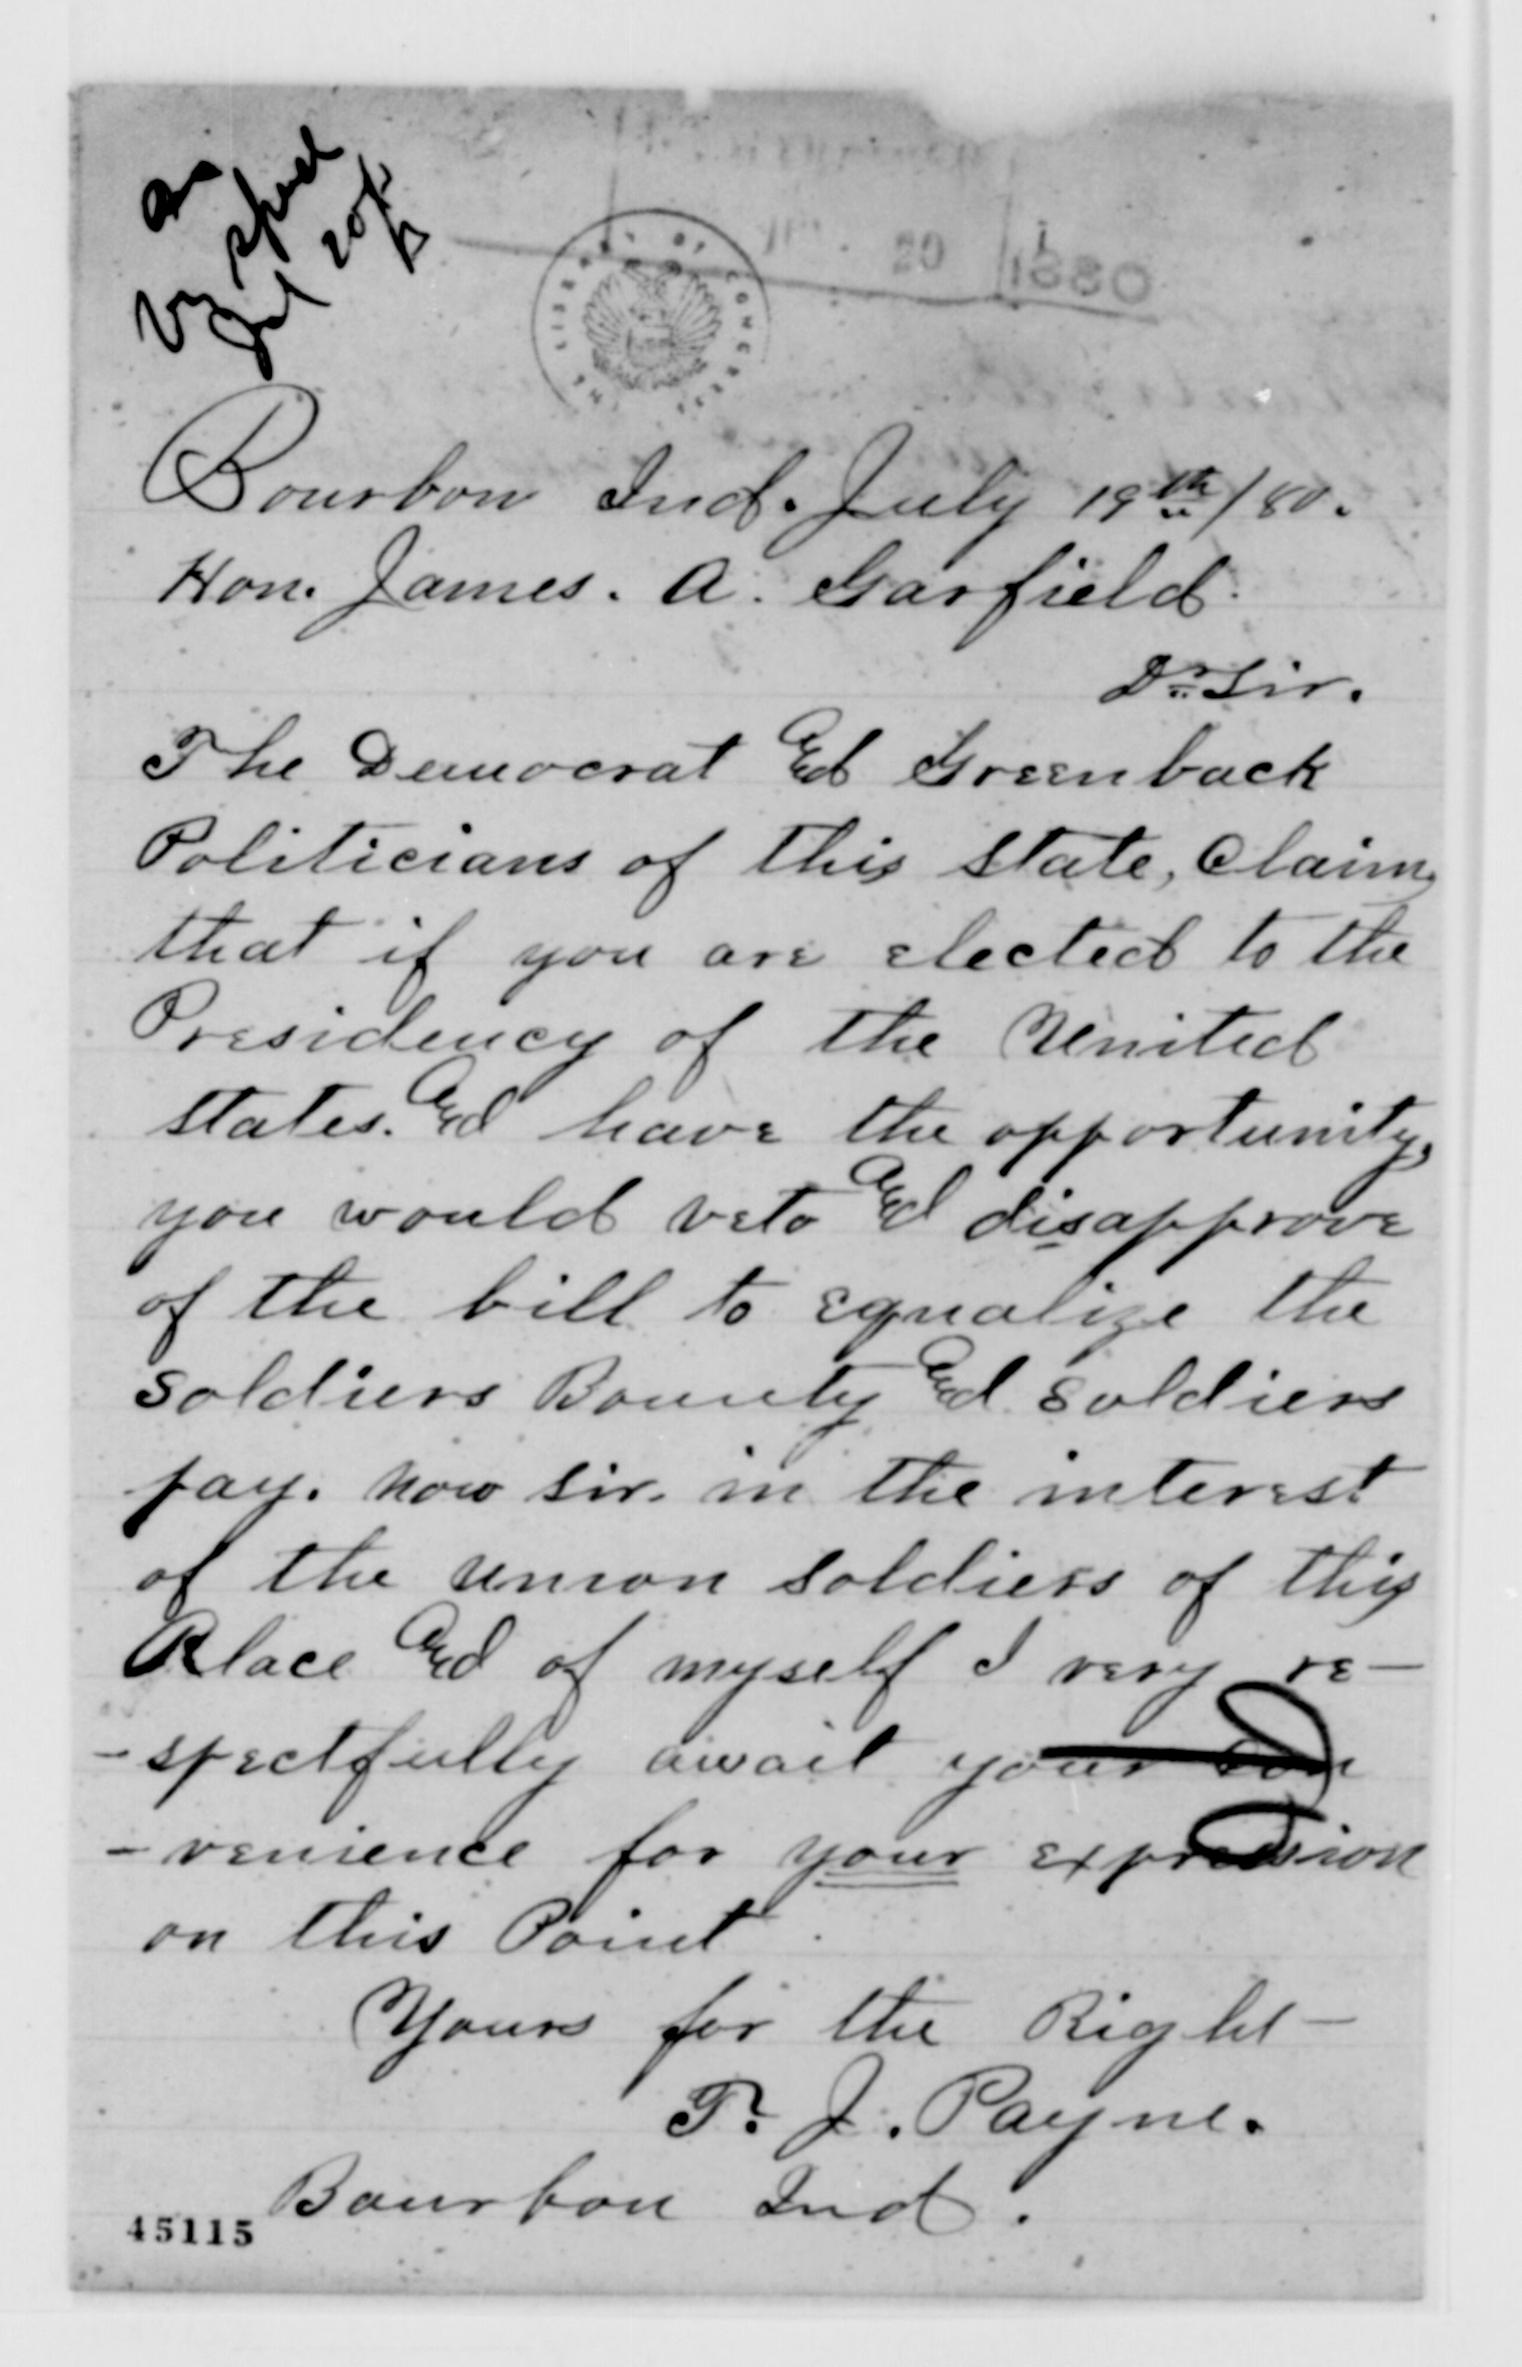 Bourbon Ind. July 19th/80.
Hon. James. A. Garfield.
Dr Sir.
The Democrat & Greenback
Politicians of this state, Claim,
that if you are elected to the
Presidency of the United
States. & have the opportunity,
you would veto & disapprove
of the bill to equalize the
Soldiers Bounty & Soldiers
pay. Now Sir. in the interest
of the union soldiers of this
Place & of myself I very re-
-spectfully await your con
-venience for your expression
on this Point
Yours for the Right —
T. J. Payne.
Bourbon Ind.
45115
20 1880
THE LIBRARY OF CONGRESS